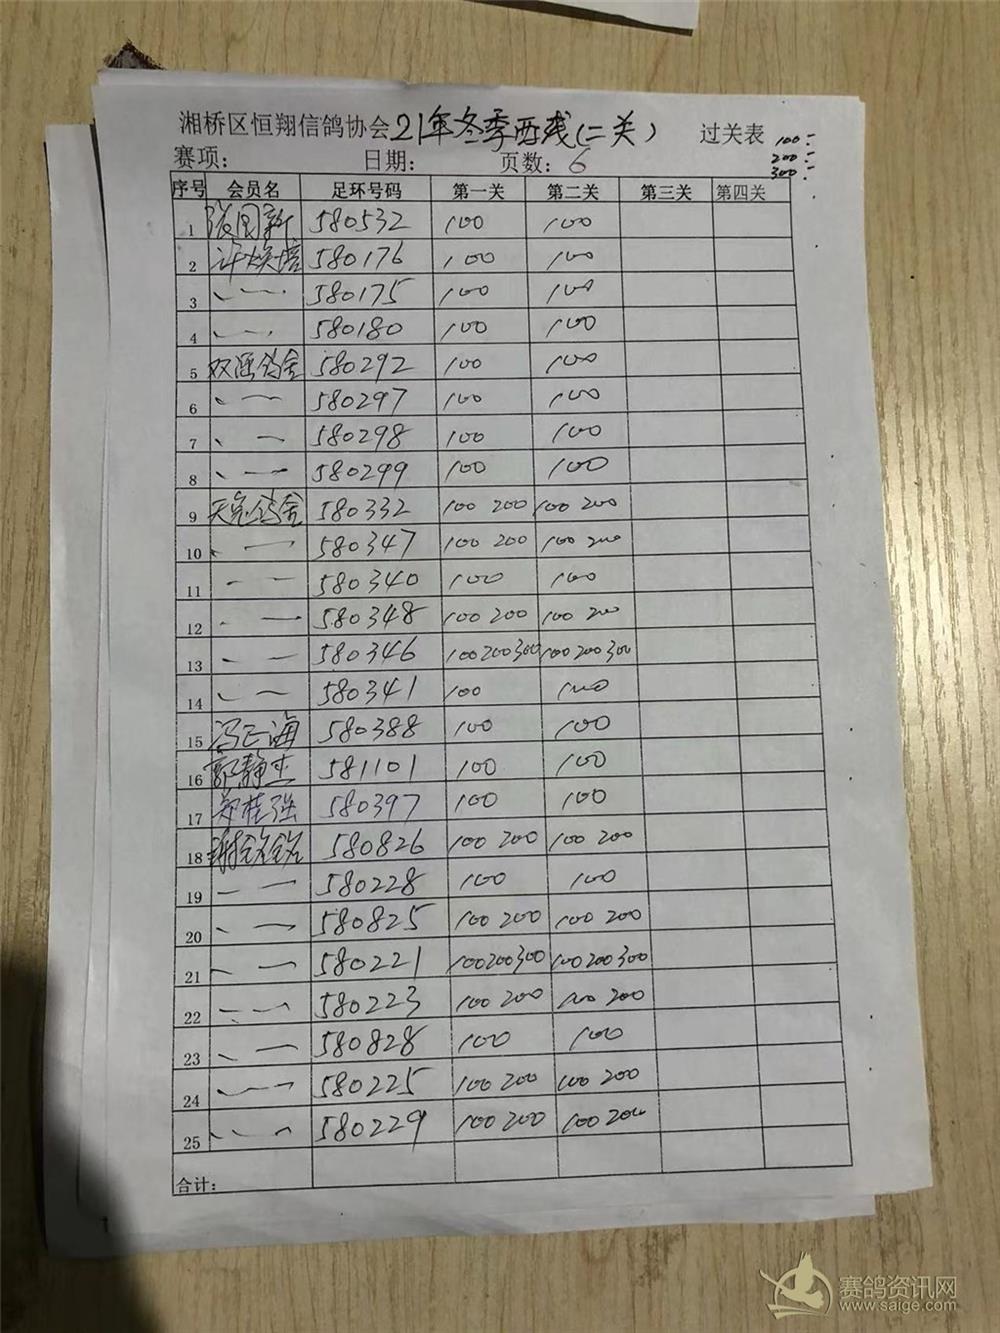 湘桥区恒翔信鸽协会21年冬季西线(二关) 过关表
100:
200:
300:
赛项: 日期: 页数: 6
序号 会员名 足环号码 第一关 第二关 第三关 第四关
1 580532 100 100
2 许焕培 580176 100 100
3 580175 100 100
4 580180 100 100
5 鸽舍 580292 100 100
6 580297 100 100
7 580298 100 100
8 580299 100 100
9 鸽舍 580332 100 200 100 200
10 580347 100 200 100 200
11 580340 100 100
12 580348 100 200 100 200
13 580346 100 200 300 100 200 300
14 580341 100 100
15 冯正海 580388 100 100
16 郭静 581101 100 100
17 郑桂强 580397 100 100
18 谢 580826 100 200 100 200
19 580228 100 100
20 580825 100 200 100 200
21 580221 100 200 300 100 200 300
22 580223 100 200 100 200
23 580828 100 100
24 580225 100 200 100 200
25 580229 100 200 100 200
合计:
赛鸽资讯网
www.saige.com